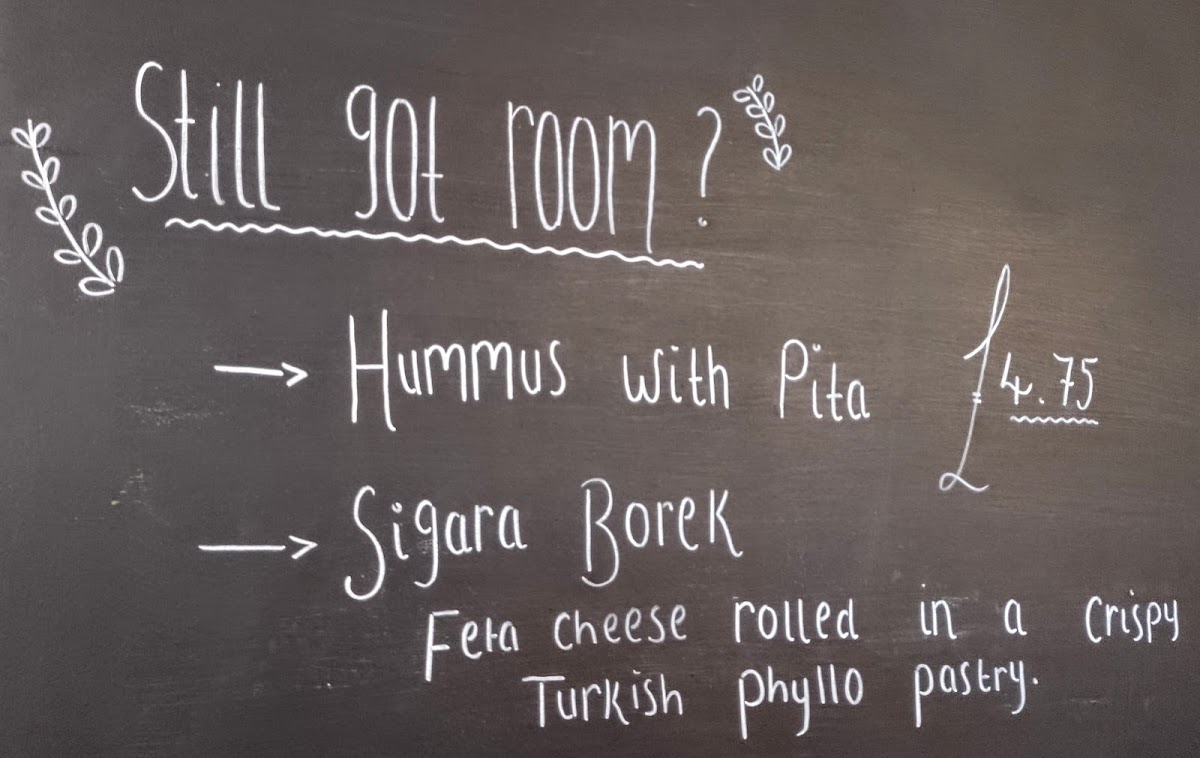 Still got room?
→ Hummus with Pita £4.75
→ Sigara Borek
Feta cheese rolled in a crispy
Turkish phyllo pastry.